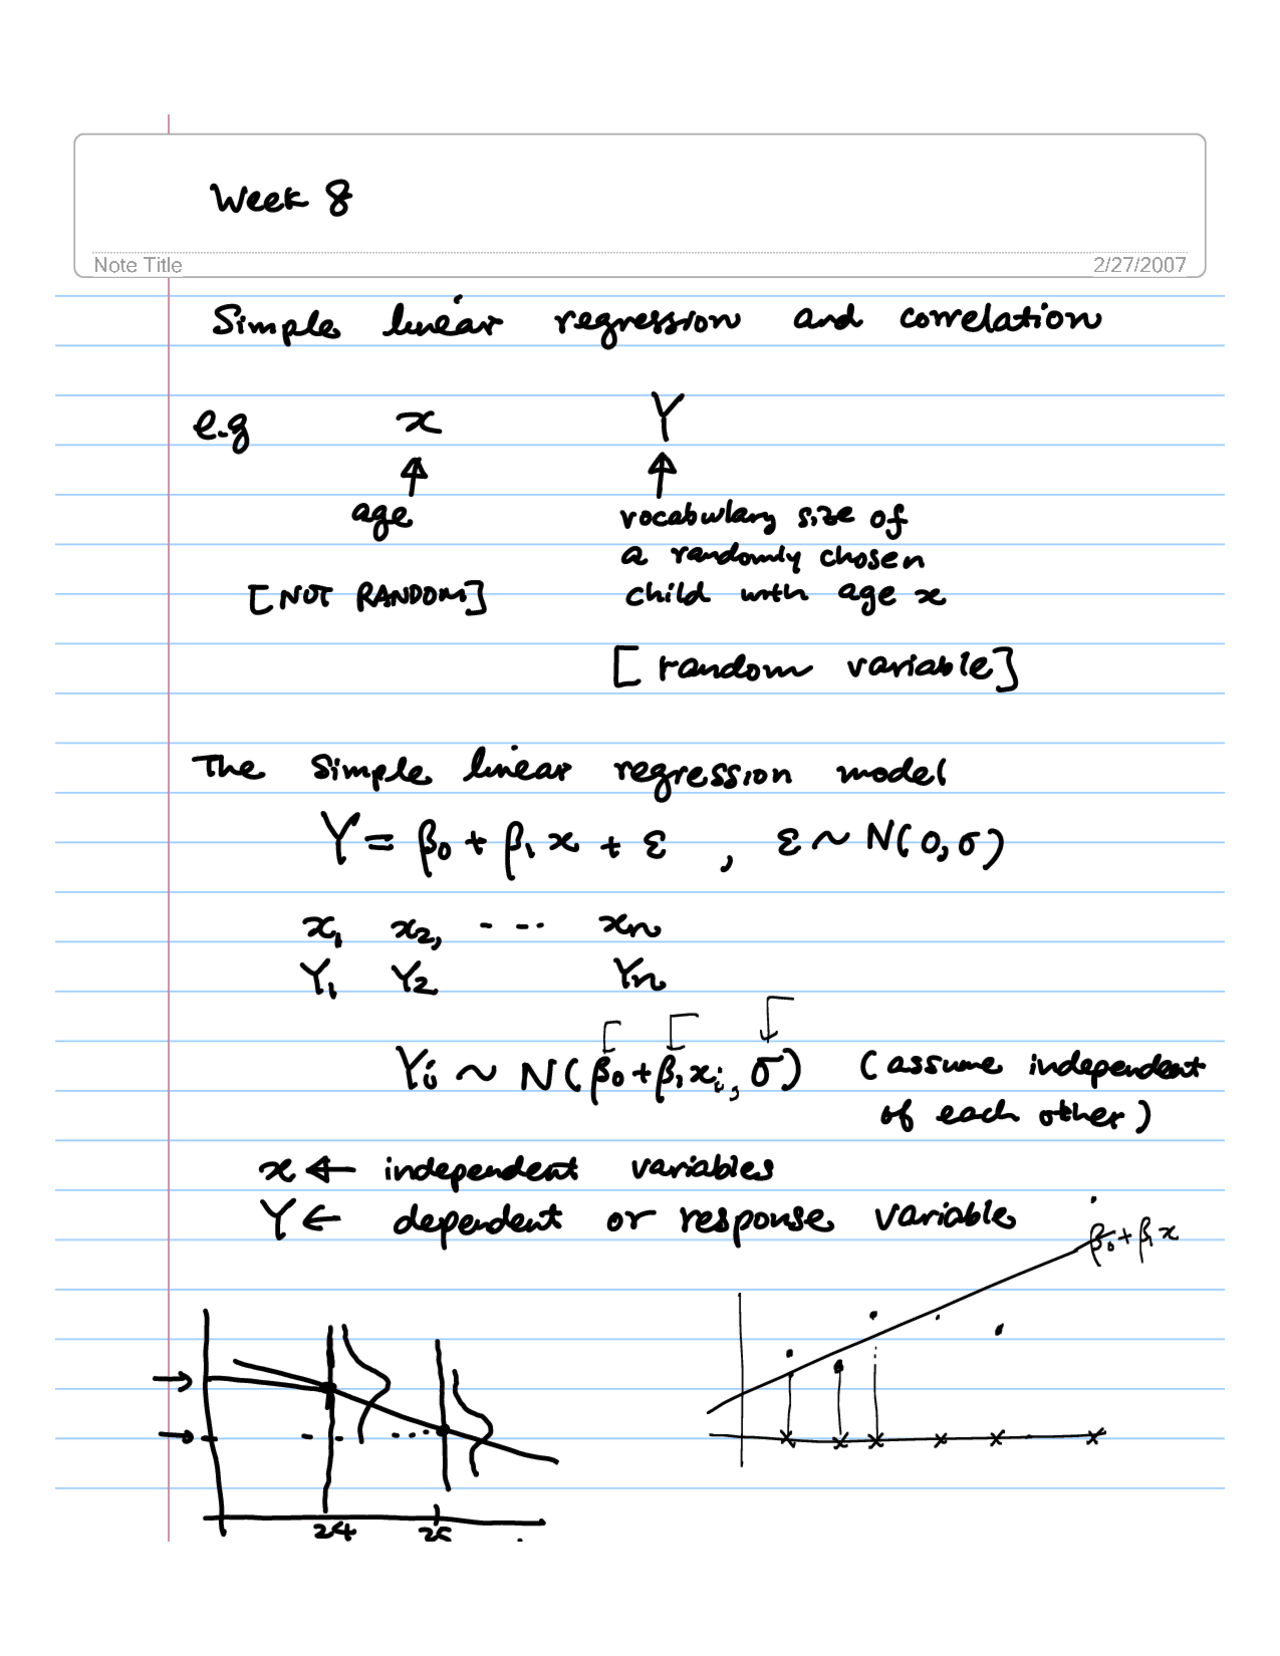 Week 8
Note Title 2/27/2007
Simple linear regression and correlation
e.g x Y
age vocabulary size of
a randomly chosen
[NOT RANDOM] child with age x
[random variable]
The Simple linear regression model
Y = β₀ + β₁ x + ε , ε ~ N(0, σ)
x₁ x₂, - - - - - xₙ
Y₁ Y₂ Yₙ
Yᵢ ~ N(β₀+β₁xᵢ, σ) (assume independent
of each other)
x ← independent variables
Y ← dependent or response variable
β₀+β₁x
24 25